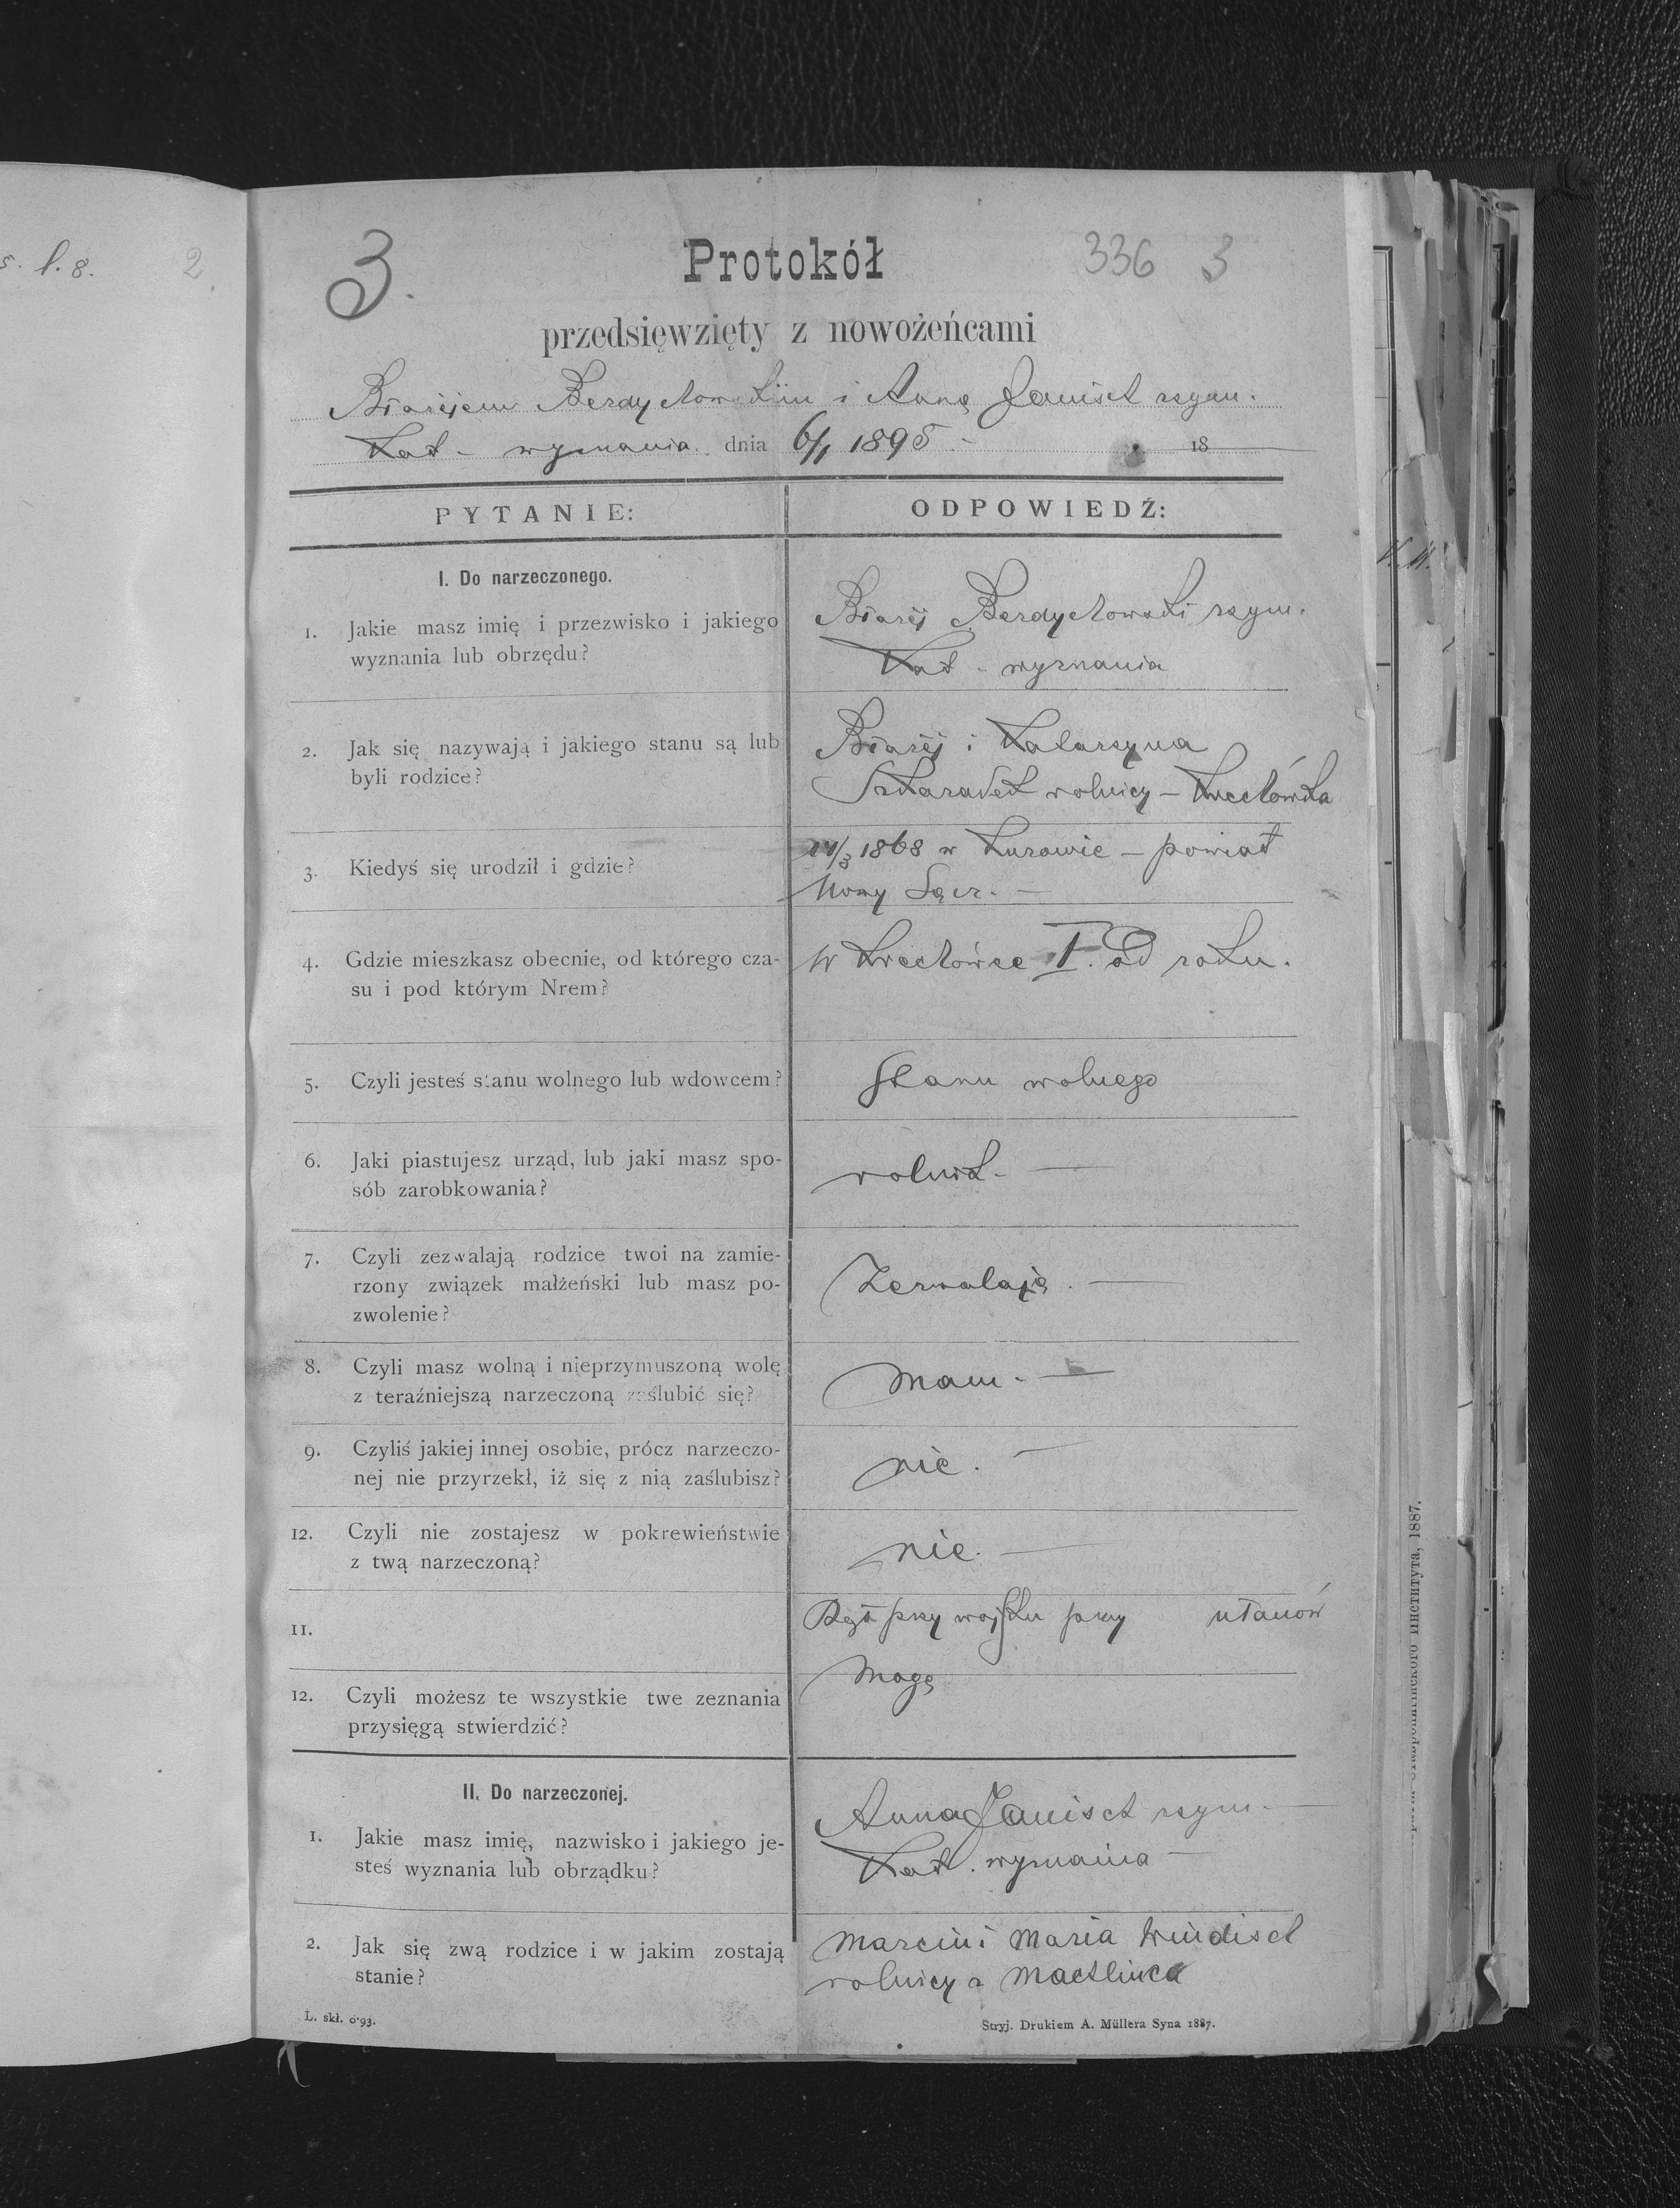 s. l. 8. 2
3. Protokół 336 3
przedsięwzięty z nowożeńcami
Błażejem Berdychowskim i Anną Janisch rzym.
Kat - wyznania dnia 6/1 1895 - 18
PYTANIE: ODPOWIEDŹ:
I. Do narzeczonego.
1. Jakie masz imię i przezwisko i jakiego
wyznania lub obrzędu?
Błażej Berdychowski rzym.
Kat - wyznania
2. Jak się nazywają i jakiego stanu są lub
byli rodzice?
Błażej i Katarzyna
rolnicy -
3. Kiedyś się urodził i gdzie?
/3 1868 w - powiat
Nowy Sącz. -
4. Gdzie mieszkasz obecnie, od którego cza-
su i pod którym Nrem?
w I. od roku.
5. Czyli jesteś stanu wolnego lub wdowcem?
Stanu wolnego
6. Jaki piastujesz urząd, lub jaki masz spo-
sób zarobkowania?
rolnik -
7. Czyli zezwalają rodzice twoi na zamie-
rzony związek małżeński lub masz po-
zwolenie?
Zezwalają. -
8. Czyli masz wolną i nieprzymuszoną wolę
z teraźniejszą narzeczoną zaślubić się?
Mam. -
9. Czyliś jakiej innej osobie, prócz narzeczo-
nej nie przyrzekł, iż się z nią zaślubisz?
nie. -
12. Czyli nie zostajesz w pokrewieństwie
z twą narzeczoną?
nie. -
11.
Był przy wojsku przy ułanów
12. Czyli możesz te wszystkie twe zeznania
przysięgą stwierdzić?
Mogę
II. Do narzeczonej.
1. Jakie masz imię, nazwisko i jakiego je-
steś wyznania lub obrządku?
Anna Janisch rzym. -
Kat. wyznania -
2. Jak się zwą rodzice i w jakim zostają
stanie?
Marcin i Maria Windisch
rolnicy z Machlińca
L. skł. 0·93.
Stryj. Drukiem A. Müllera Syna 1887.
института, 1887.